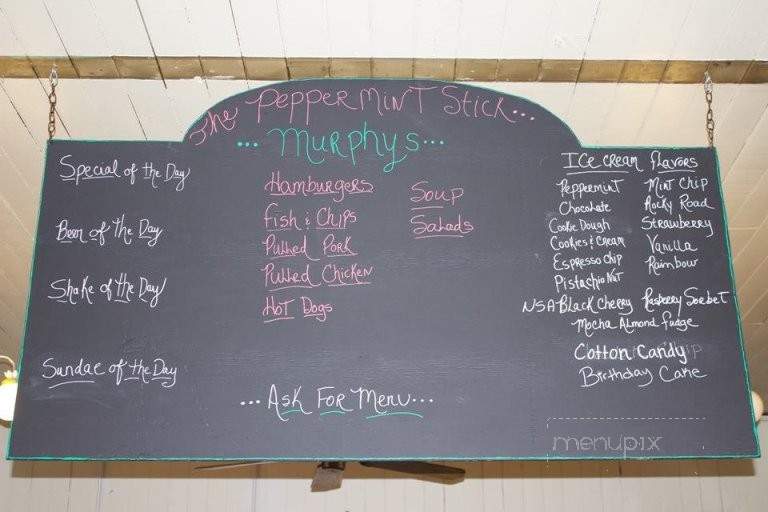 The Peppermint Stick...
... Murphys...
Special of the Day
Beer of the Day
Shake of the Day
Sundae of the Day
Hamburgers
Fish & Chips
Pulled Pork
Pulled Chicken
Hot Dogs
Soup
Salads
... Ask For Menu...
Ice cream flavors
Peppermint Mint Chip
Chocolate Rocky Road
Cookie Dough Strawberry
Cookies & Cream Vanilla
Espresso Chip Rainbow
Pistachio Nut
NSA Black Cherry Rasperry Sorbet
Mocha Almond Fudge
Cotton Candy
Birthday Cake
menupix